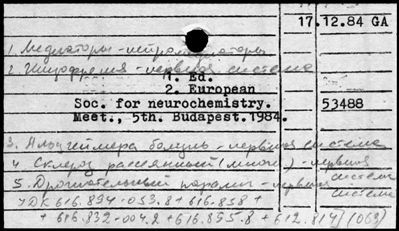 17.12.84 GA
1. Медиаторы - нейромедиаторы
2. Шизофрения - нервная система
1. Ed.
2. European
Soc. for neurochemistry.
53488
Meet., 5th. Budapest.1984.
3. Альцгеймера болезнь - нервная система
4. Склероз рассеянный (множ.) - нервная система
5. Дрожательный паралич - нервная система
УДК 616.894-053.8 + 616.858 +
+ 616.832-004.2 + 616.895.8 + 612.814] (063)